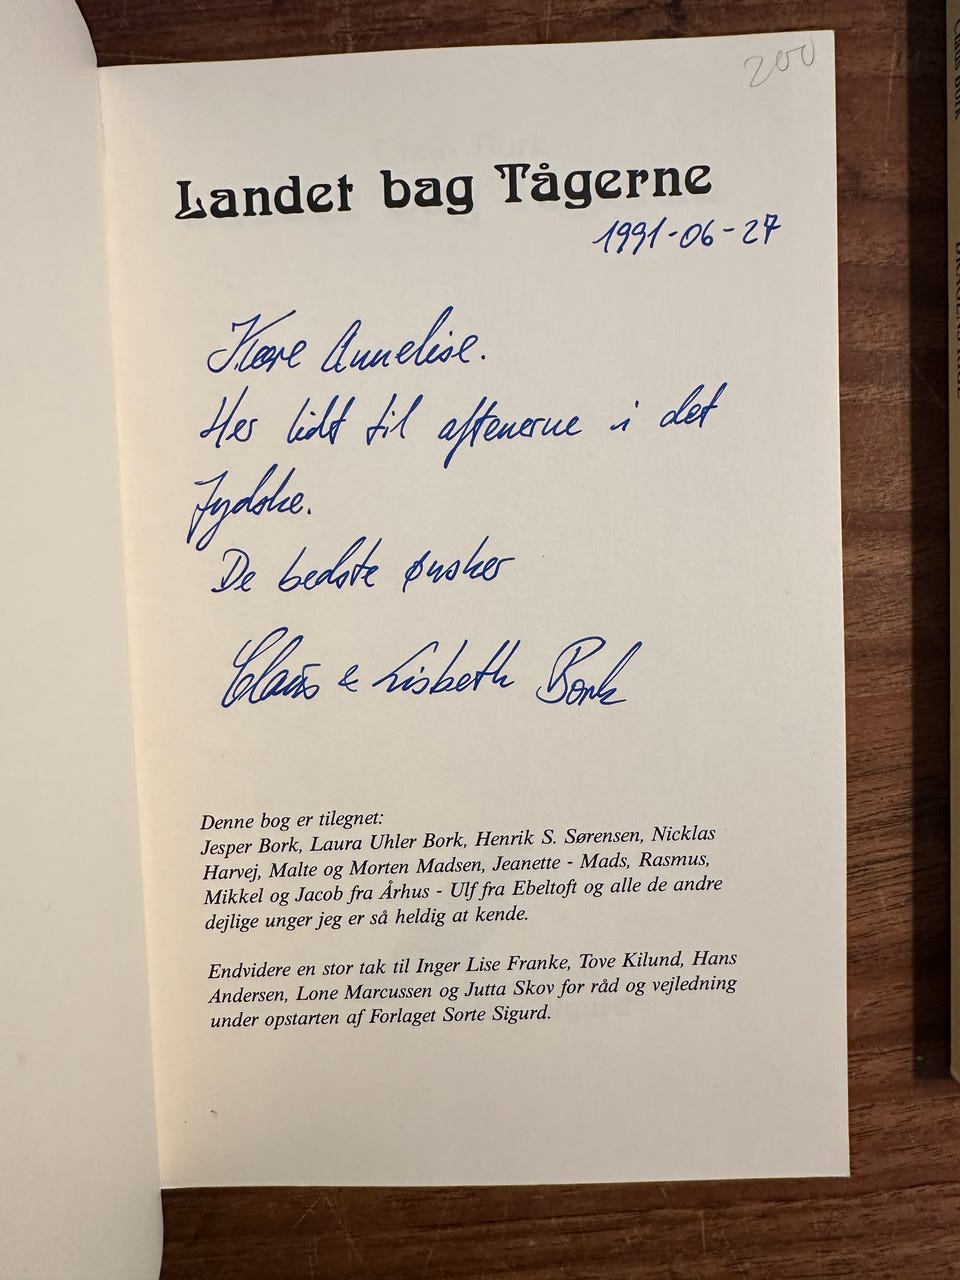 200
Landet bag Tågerne
1991-06-27
Kære Annelise.
Her lidt til aftenerne i det
Jydske.
De bedste ønsker
Claus & Lisbeth Bork
Denne bog er tilegnet:
Jesper Bork, Laura Uhler Bork, Henrik S. Sørensen, Nicklas
Harvej, Malte og Morten Madsen, Jeanette - Mads, Rasmus,
Mikkel og Jacob fra Århus - Ulf fra Ebeltoft og alle de andre
dejlige unger jeg er så heldig at kende.
Endvidere en stor tak til Inger Lise Franke, Tove Kilund, Hans
Andersen, Lone Marcussen og Jutta Skov for råd og vejledning
under opstarten af Forlaget Sorte Sigurd.